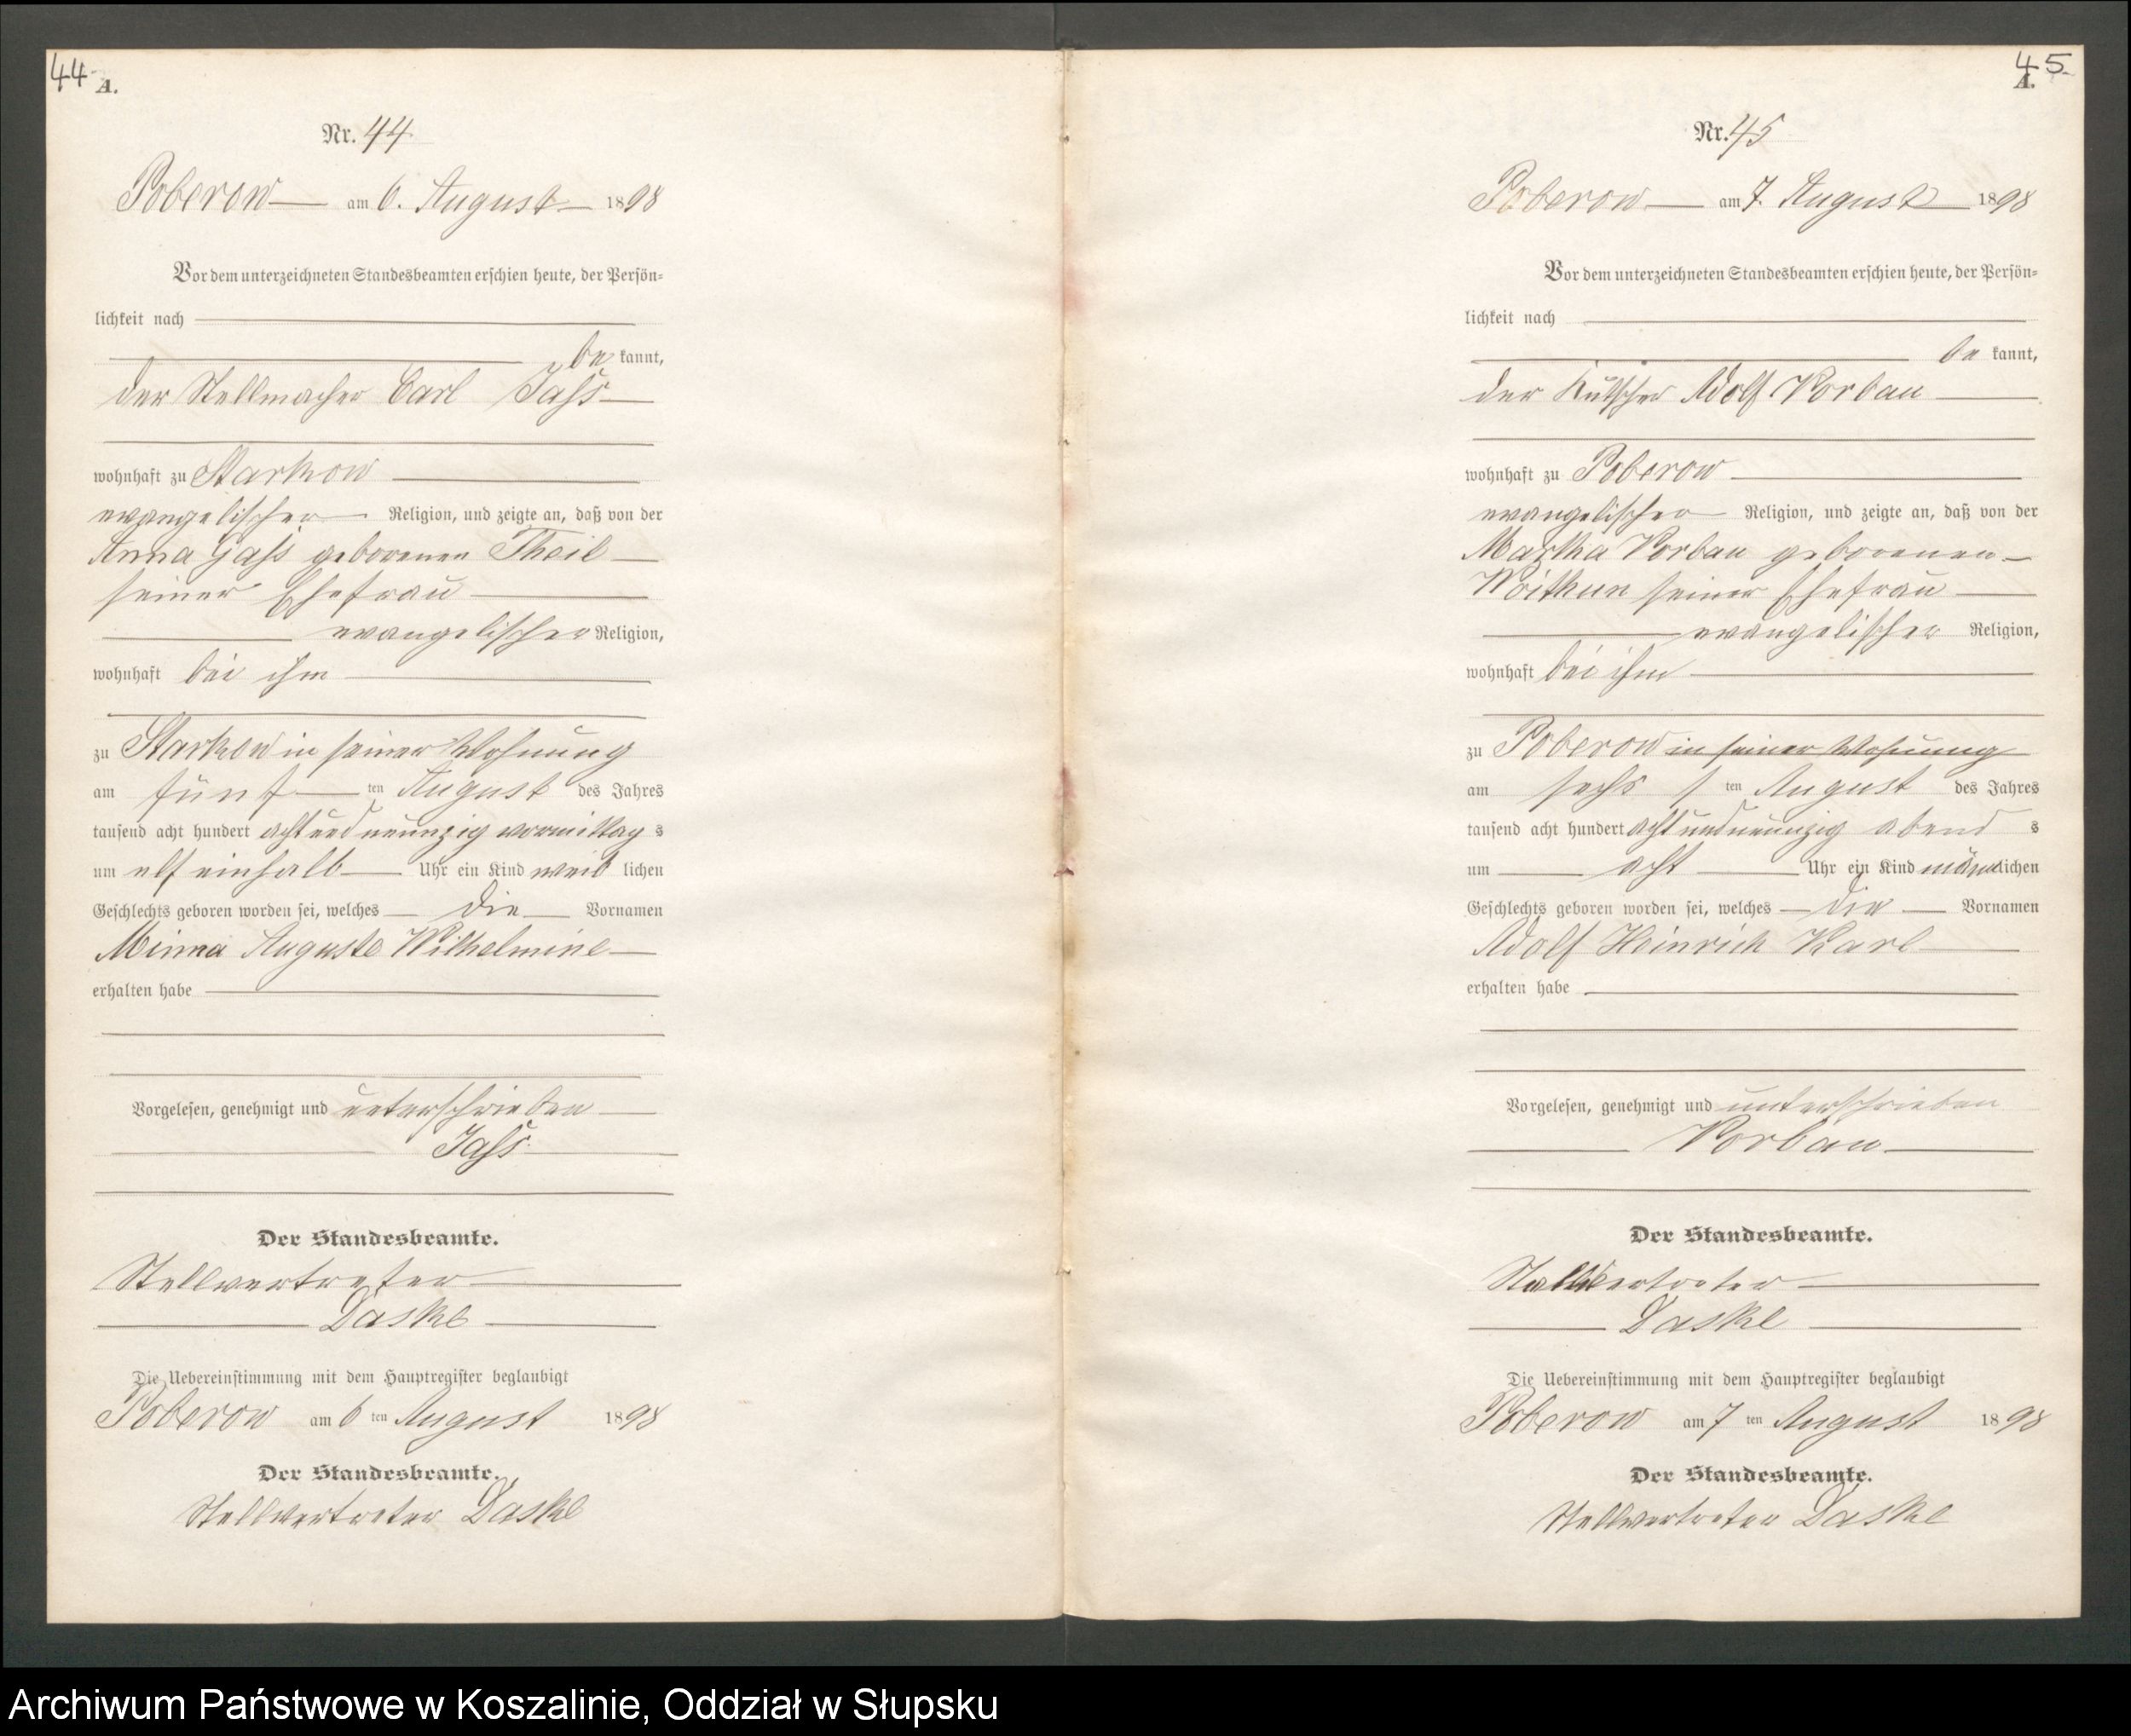 44
A.
Nr. 44
Poberow am 6. August 1898
Vor dem unterzeichneten Standesbeamten erschien heute, der Persön-
lichkeit nach
be kannt,
der Stellmacher Carl Jass
wohnhaft zu Starkow
evangelischer Religion, und zeigte an, daß von der
Anna Jass geborenen Theil
seiner Ehefrau
evangelischer Religion,
wohnhaft bei ihm
zu Starkow in seiner Wohnung
am fünf ten August des Jahres
tausend acht hundert acht und neunzig vormittag s
um elf einhalb Uhr ein Kind weib lichen
Geschlechts geboren worden sei, welches die Vornamen
Minna Auguste Wilhelmine
erhalten habe
Vorgelesen, genehmigt und unterschrieben
Jass
Der Standesbeamte.
Stellvertreter
Daske
Die Uebereinstimmung mit dem Hauptregister beglaubigt
Poberow am 6 ten August 1898
Der Standesbeamte.
Stellvertreter Daske
45
A.
Nr. 45
Poberow am 7. August 1898
Vor dem unterzeichneten Standesbeamten erschien heute, der Persön-
lichkeit nach
be kannt,
der Kutscher Adolf Vorbau
wohnhaft zu Poberow
evangelischer Religion, und zeigte an, daß von der
Martha Vorbau geborenen
Woithun seiner Ehefrau
evangelischer Religion,
wohnhaft bei ihm
zu Poberow in seiner Wohnung
am sechs ten August des Jahres
tausend acht hundert acht und neunzig abend s
um acht Uhr ein Kind männlichen
Geschlechts geboren worden sei, welches die Vornamen
Adolf Heinrich Karl
erhalten habe
Vorgelesen, genehmigt und unterschrieben
Vorbau
Der Standesbeamte.
Stellvertreter
Daske
Die Uebereinstimmung mit dem Hauptregister beglaubigt
Poberow am 7 ten August 1898
Der Standesbeamte.
Stellvertreter Daske
Archiwum Państwowe w Koszalinie, Oddział w Słupsku